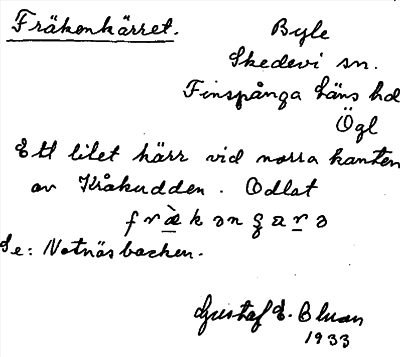 Fräkenkärret. Byle
Skedevi sn.
Finspånga läns hd
Ögl
Ett litet kärr vid norra kanten
av Kråkudden. Odlat
Se: Notnäsbacken.
Gustaf E.
1933